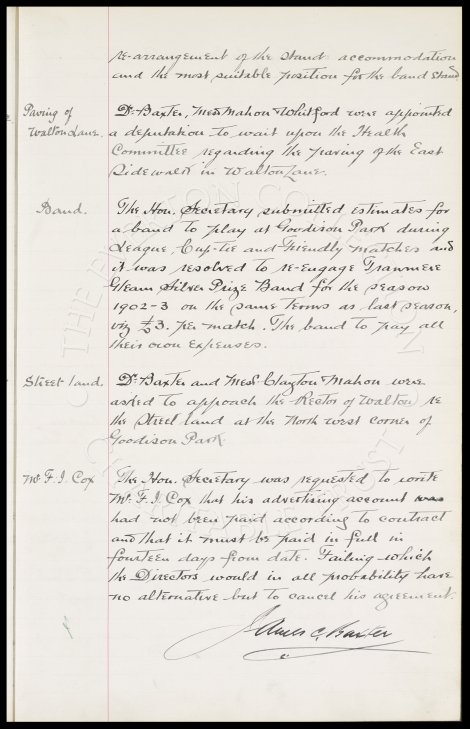 re-arrangement of the stand accommodation
and the most suitable position for the band stand
Paving of
Walton Lane.
Dr. Baxter, Mess Mahon & Whitford were appointed
a deputation to wait upon the Health
Committee regarding the paving of the East
Sidewalk in Walton Lane.
Band.
The Hon. Secretary submitted estimates for
a band to play at Goodison Park during
League, Cup-tie and Friendly matches and
it was resolved to re-engage Tranmere
Gleam Silver Prize Band for the season
1902-3 on the same terms as last season,
viz £3. per match. The band to pay all
their own expenses.
Street land.
Dr. Baxter and Mess Clayton & Mahon were
asked to approach the Rector of Walton re
the Street land at the North west corner of
Goodison Park.
Mr F. J. Cox
The Hon. Secretary was requested to write
Mr. F. J. Cox that his advertising account was
had not been paid according to contract
and that it must be paid in full in
fourteen days from date. Failing which
the Directors would in all probability have
no alternative but to cancel his agreement.
James C. Baxter